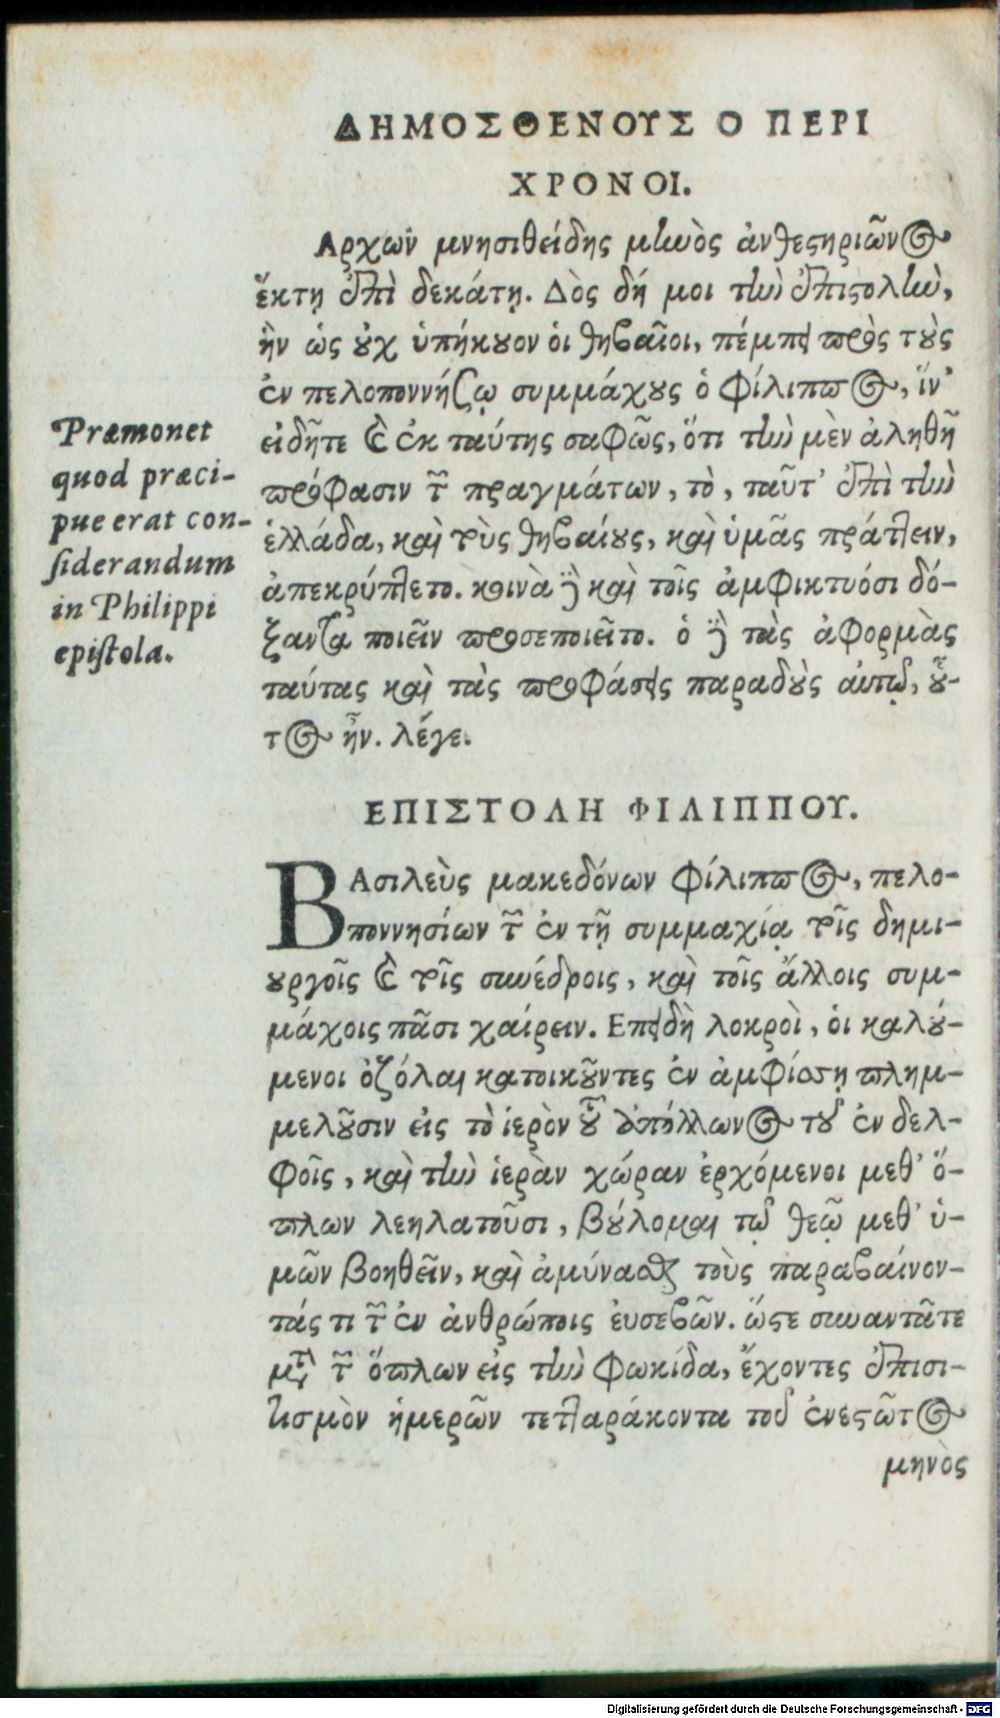 ΔΗΜΟΣΘΕΝΟΥΣ Ο ΠΕΡΙ
ΧΡΟΝΟΙ.
Αρχων μνησιθείδης μηνὸς ἀνθεστηριῶνος
ἕκτῃ ἐπὶ δεκάτῃ. Δὸς δή μοι τὴν ἐπιστολὴν,
ἣν ὡς οὐχ ὑπήκουον οἱ θηβαῖοι, πέμπει πρὸς τοὺς
ἐν πελοποννήσῳ συμμάχους ὁ φίλιππος, ἵν'
εἰδῆτε καὶ ἐκ ταύτης σαφῶς, ὅτι τὴν μὲν ἀληθῆ
πρόφασιν τῶν πραγμάτων, τὸ, ταῦτ' ἐπὶ τὴν
ἑλλάδα, καὶ τοὺς θηβαίους, καὶ ὑμᾶς πράττειν,
ἀπεκρύπτετο. κοινὰ δὲ καὶ τοῖς ἀμφικτυόσι δό-
ξαντα ποιεῖν προσεποιεῖτο. ὁ δὲ τὰς ἀφορμὰς
ταύτας καὶ τὰς προφάσεις παραδοὺς αὐτῷ, οὗ-
τος ἦν. λέγε.
Præmonet
quod præci-
pue erat con-
siderandum
in Philippi
epistola.
ΕΠΙΣΤΟΛΗ ΦΙΛΙΠΠΟΥ.
ΒΑσιλεὺς μακεδόνων φίλιππος, πελο-
ποννησίων τῶν ἐν τῇ συμμαχίᾳ τοῖς δημι-
ουργοῖς καὶ τοῖς συνέδροις, καὶ τοῖς ἄλλοις συμ-
μάχοις πᾶσι χαίρειν. Επειδὴ λοκροὶ, οἱ καλού-
μενοι ὀζόλαι κατοικοῦντες ἐν ἀμφίσσῃ πλημ-
μελοῦσιν εἰς τὸ ἱερὸν τοῦ ἀπόλλωνος τοῦ ἐν δελ-
φοῖς, καὶ τὴν ἱερὰν χώραν ἐρχόμενοι μεθ' ὅ-
πλων λεηλατοῦσι, βούλομαι τῷ θεῷ μεθ' ὑ-
μῶν βοηθεῖν, καὶ ἀμύνασθαι τοὺς παραβαίνον-
τάς τι τῶν ἐν ἀνθρώποις ἐυσεβῶν. ὥστε συναντᾶτε
μετὰ τῶν ὅπλων εἰς τὴν φωκίδα, ἔχοντες ἐπισι-
τισμὸν ἡμερῶν τετταράκοντα τοῦ ἐνεστῶτος
μηνὸς
Digitalisierung gefördert durch die Deutsche Forschungsgemeinschaft - DFG